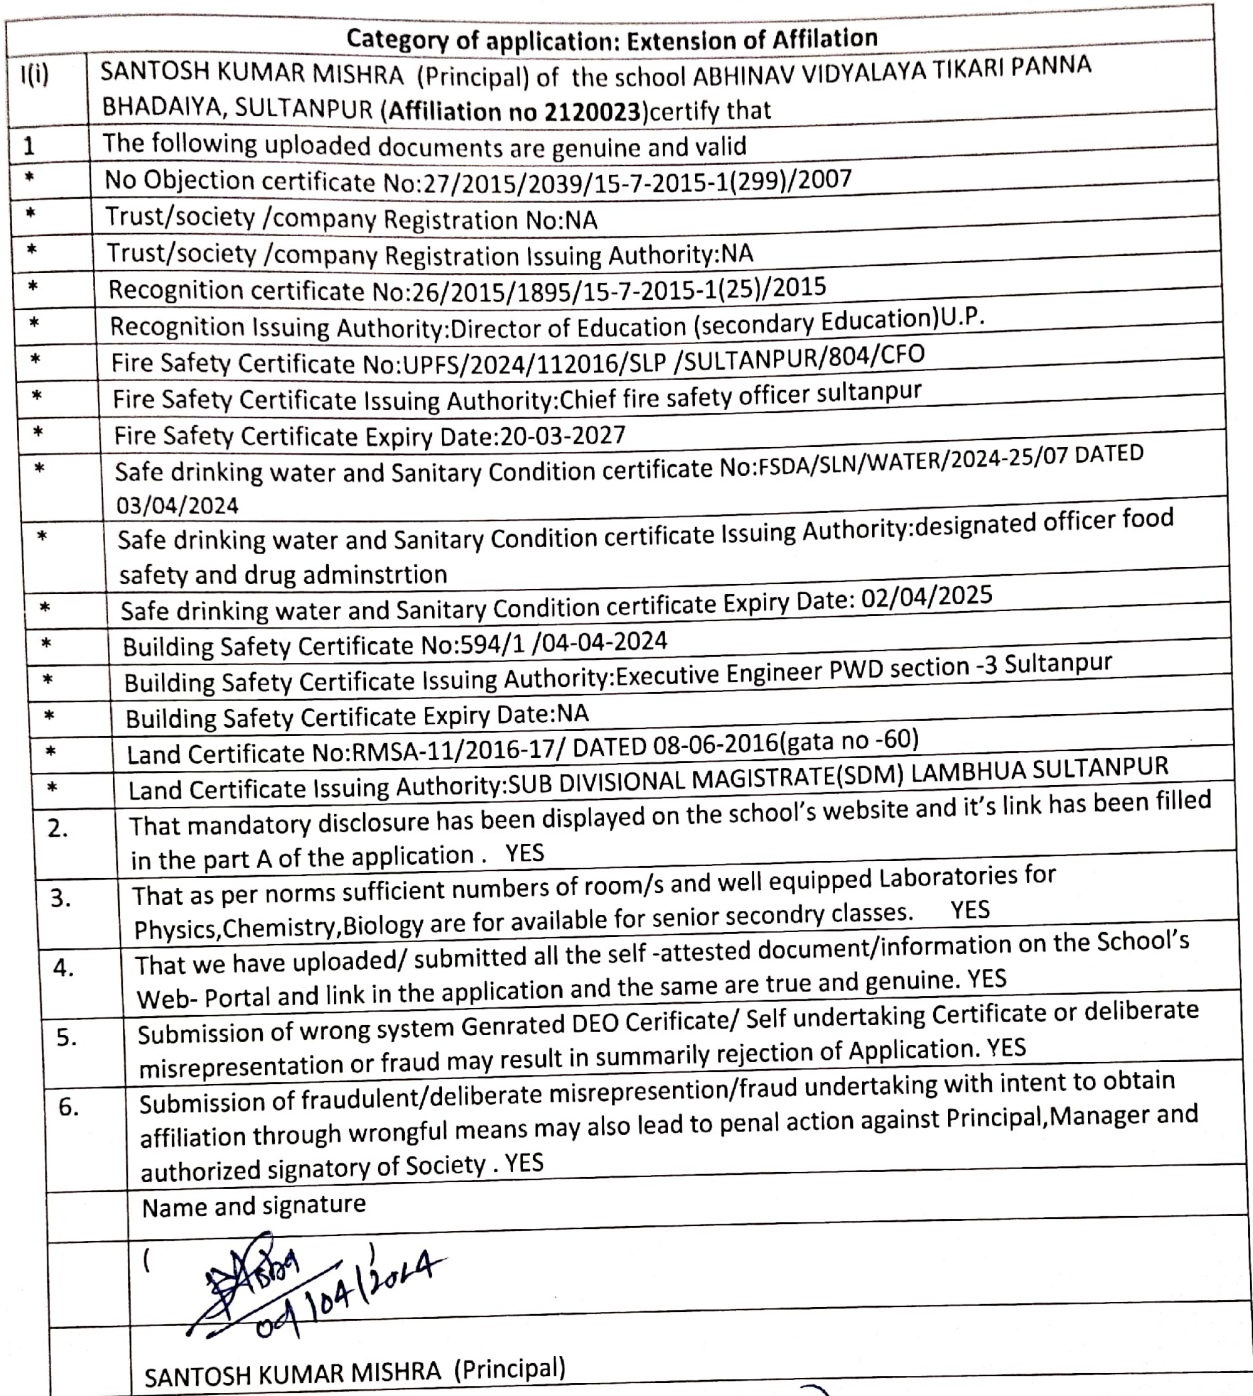 Category of application: Extension of Affilation
I(i) SANTOSH KUMAR MISHRA (Principal) of the school ABHINAV VIDYALAYA TIKARI PANNA
BHADAIYA, SULTANPUR (Affiliation no 2120023)certify that
1 The following uploaded documents are genuine and valid
* No Objection certificate No:27/2015/2039/15-7-2015-1(299)/2007
* Trust/society /company Registration No:NA
* Trust/society /company Registration Issuing Authority:NA
* Recognition certificate No:26/2015/1895/15-7-2015-1(25)/2015
* Recognition Issuing Authority:Director of Education (secondary Education)U.P.
* Fire Safety Certificate No:UPFS/2024/112016/SLP /SULTANPUR/804/CFO
* Fire Safety Certificate Issuing Authority:Chief fire safety officer sultanpur
* Fire Safety Certificate Expiry Date:20-03-2027
* Safe drinking water and Sanitary Condition certificate No:FSDA/SLN/WATER/2024-25/07 DATED
03/04/2024
* Safe drinking water and Sanitary Condition certificate Issuing Authority:designated officer food
safety and drug adminstrtion
* Safe drinking water and Sanitary Condition certificate Expiry Date: 02/04/2025
* Building Safety Certificate No:594/1 /04-04-2024
* Building Safety Certificate Issuing Authority:Executive Engineer PWD section -3 Sultanpur
* Building Safety Certificate Expiry Date:NA
* Land Certificate No:RMSA-11/2016-17/ DATED 08-06-2016(gata no -60)
* Land Certificate Issuing Authority:SUB DIVISIONAL MAGISTRATE(SDM) LAMBHUA SULTANPUR
2. That mandatory disclosure has been displayed on the school's website and it's link has been filled
in the part A of the application . YES
3. That as per norms sufficient numbers of room/s and well equipped Laboratories for
Physics,Chemistry,Biology are for available for senior secondry classes. YES
4. That we have uploaded/ submitted all the self -attested document/information on the School's
Web- Portal and link in the application and the same are true and genuine. YES
5. Submission of wrong system Genrated DEO Cerificate/ Self undertaking Certificate or deliberate
misrepresentation or fraud may result in summarily rejection of Application. YES
6. Submission of fraudulent/deliberate misrepresention/fraud undertaking with intent to obtain
affiliation through wrongful means may also lead to penal action against Principal,Manager and
authorized signatory of Society . YES
Name and signature
( )
/04/2024
SANTOSH KUMAR MISHRA (Principal)